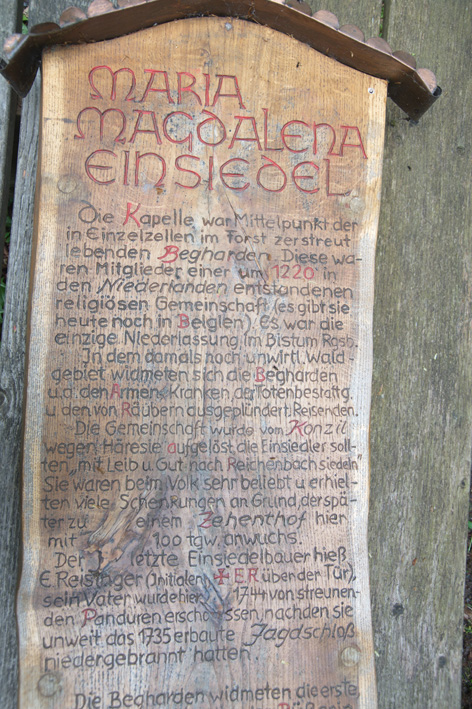 MARIA
MAGDALENA
EINSIEDEL
Die Kapelle war Mittelpunkt der
in Einzelzellen im Forst zerstreut
lebenden Begharden. Diese wa-
ren Mitglieder einer um 1220 in
den Niederlanden entstandenen
religiösen Gemeinschaft (es gibt sie
heute noch in Belgien). Es war die
einzige Niederlassung im Bistum Rgsb.
In dem damals noch unwirtl. Wald-
gebiet widmeten sich die Begharden
u.a. den Armen, Kranken, der Totenbestattg.
u. den von Räubern ausgeplündert. Reisenden.
Die Gemeinschaft wurde vom Konzil
wegen Häresie aufgelöst, die Einsiedler soll-
ten, "mit Leib u. Gut nach Reichenbach siedeln"
Sie waren beim Volk sehr beliebt u. erhiel-
ten viele Schenkungen an Grund, der spä-
ter zu einem Zehenthof hier
mit 100 tgw. anwuchs.
Der letzte Einsiedelbauer hieß
E. Reisinger (Initialen E R über der Tür),
sein Vater wurde hier 1744 von streunen-
den Panduren erschossen, nachden sie
unweit das 1735 erbaute Jagdschloß
niedergebrannt hatten.
Die Begharden widmeten die erste